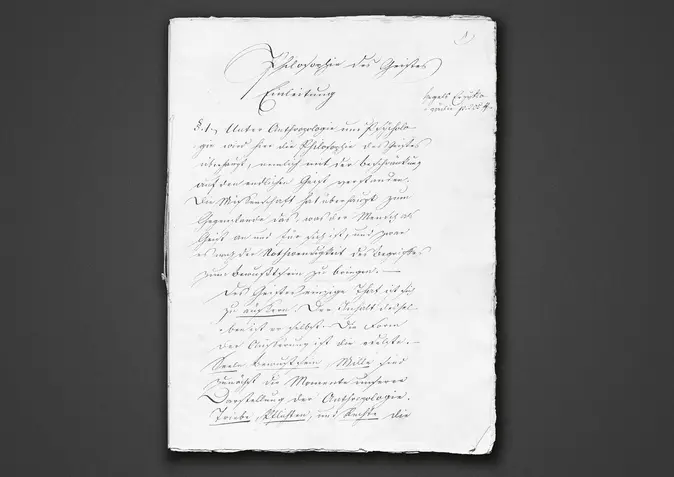 Philosophie des Geistes
Einleitung
Hegels Encyklo-
§. 1. Unter Anthropologie und Psycholo-
gie wird hier die Philosophie des Geistes
überhaupt, nemlich mit der Beschränkung
auf den endlichen Geist verstanden.
Die Wissenschaft hat überhaupt zum
Gegenstande das was der Mensch als
Geist an und für sich ist, und zwar
es nach der Nothwendigkeit des Begriffes
zum Bewußtsein zu bringen. —
Des Geistes einzige That ist sich
zu äußern. Der Inhalt dessel-
ben ist er selbst. Die Form
der Äußerung ist die
Seele Bewußtsein Wille sind
zunächst die Momente unserer
Darstellung der Anthropologie.
Triebe, Pflichten, und Rechte der